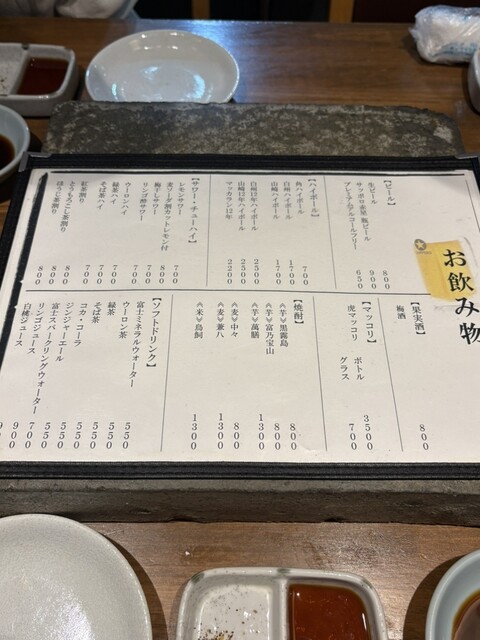 お飲み物
【ビール】
生ビール 800
サッポロ赤星 瓶ビール 900
プレミアムアルコールフリー 650
【ハイボール】
角ハイボール 700
白州ハイボール 1700
山崎ハイボール 1700
白州12年ハイボール 2500
山崎12年ハイボール 2500
マッカラン12年 2200
【サワー・チューハイ】
レモンサワー 700
麦ソーダ割カットレモン付 700
梅干しサワー 800
リンゴ酢サワー 700
ウーロンハイ 700
緑茶ハイ 700
そば茶ハイ 700
紅茶割り 700
とうもろこし茶割り 800
ほうじ茶割り 800
【果実酒】
梅酒 800
【マッコリ】
虎マッコリ ボトル 3500
グラス 700
【焼酎】
≪芋≫黒霧島 800
≪芋≫富乃宝山 800
≪芋≫萬膳 1300
≪麦≫中々 800
≪麦≫兼八 1300
≪米≫鳥飼 1300
【ソフトドリンク】
富士ミネラルウォーター 550
ウーロン茶 550
緑茶 550
そば茶 550
コカ・コーラ 550
ジンジャーエール 550
富士スパークリングウォーター 550
リンゴジュース 700
白桃ジュース 900